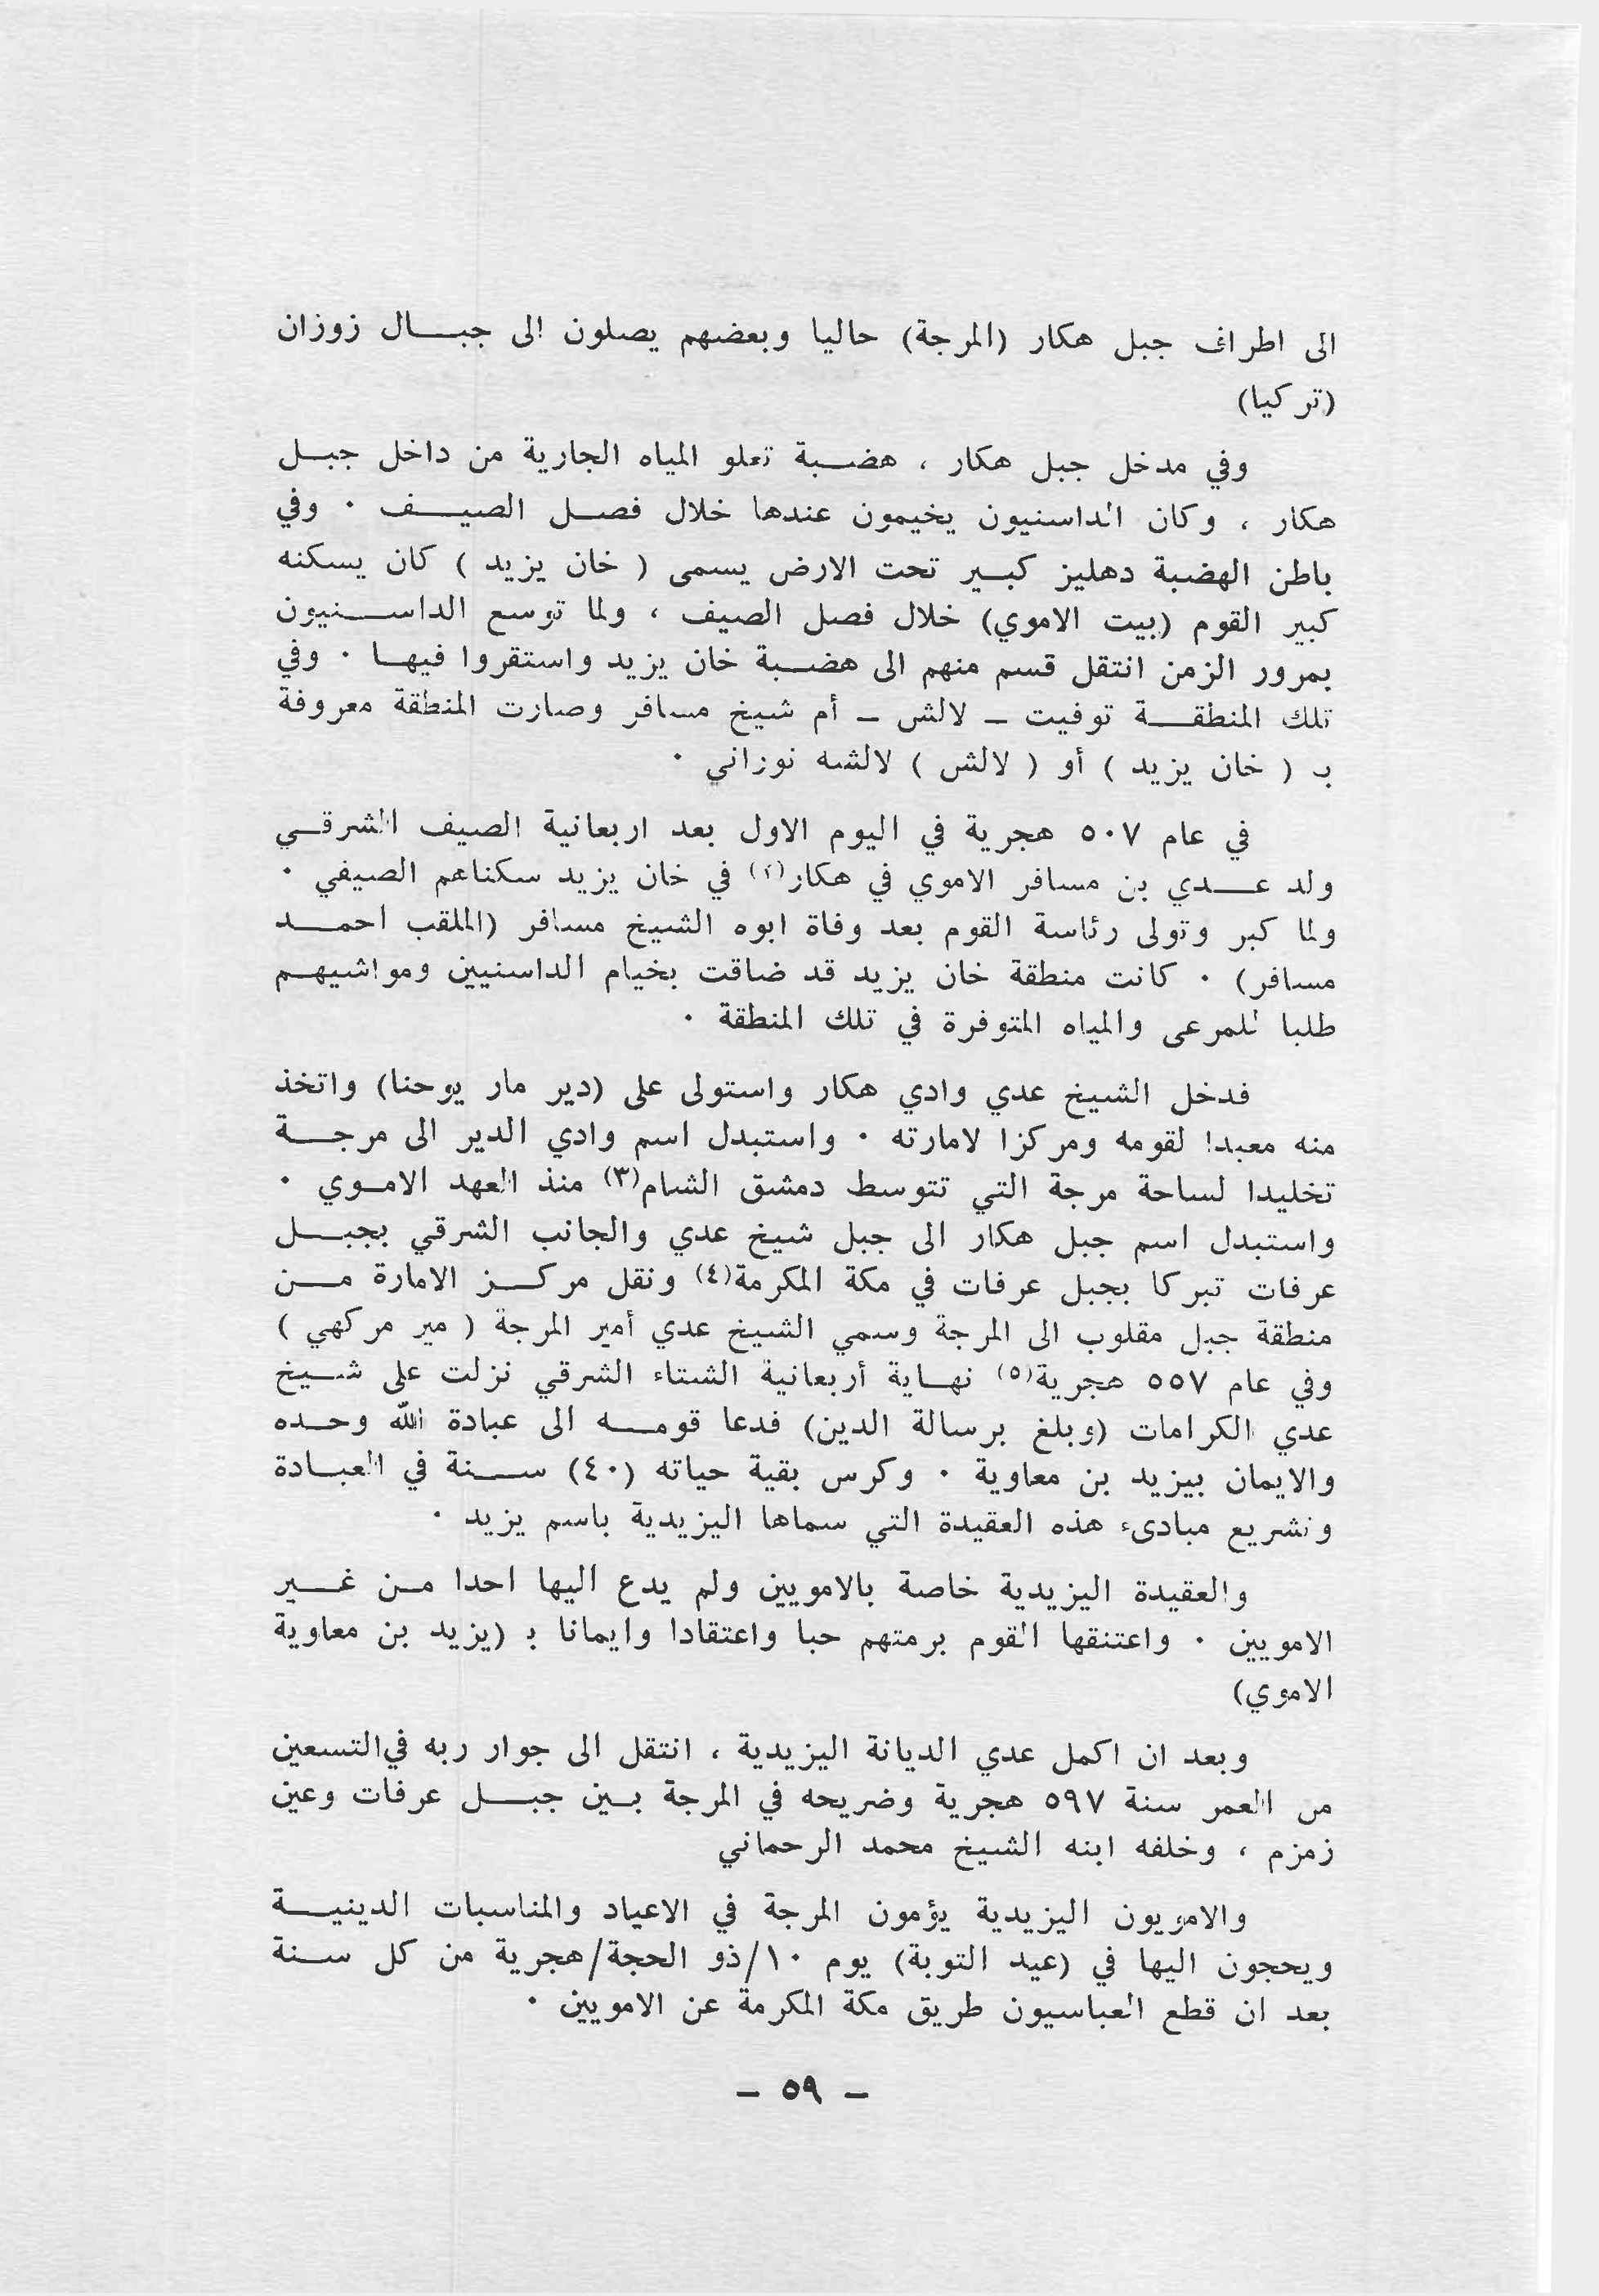 الى اطراف جبل هكار (المرجة) حاليا وبعضهم يصلون الى جبال زوزان
(تركيا)
وفي مدخل جبل هكار ، هضبة تعلو المياه الجارية من داخل جبل
هكار ، وكان الداسنيون يخيمون عندها خلال فصل الصيف ٠ وفي
باطن الهضبة دهليز كبير تحت الارض يسمى ( خان يزيد ) كان يسكنه
كبير القوم (بيت الاموي) خلال فصل الصيف ، ولما توسع الداسنيون
بمرور الزمن انتقل قسم منهم الى هضبة خان يزيد واستقروا فيها ٠ وفي
تلك المنطقة توفيت ـ لالش ـ أم شيخ مسافر وصارت المنطقة معروفة
بـ ( خان يزيد ) أو ( لالش ) لالشه نوراني ٠
في عام ٥٠٧ هجرية في اليوم الاول بعد اربعانية الصيف الشرقي
ولد عدي بن مسافر الاموي في هكار(٢) في خان يزيد سكناهم الصيفي ٠
ولما كبر وتولى رئاسة القوم بعد وفاة ابوه الشيخ مسافر (الملقب احمد
مسافر) ٠ كانت منطقة خان يزيد قد ضاقت بخيام الداسنيين ومواشيهم
طلبا للمرعى والمياه المتوفرة في تلك المنطقة ٠
فدخل الشيخ عدي وادي هكار واستولى على (دير مار يوحنا) واتخذ
منه معبدا لقومه ومركزا لامارته ٠ واستبدل اسم وادي الدير الى مرجة
تخليدا لساحة مرجة التي تتوسط دمشق الشام(٣) منذ العهد الاموي ٠
واستبدل اسم جبل هكار الى جبل شيخ عدي والجانب الشرقي بجبل
عرفات تبركا بجبل عرفات في مكة المكرمة(٤) ونقل مركز الامارة من
منطقة جبل مقلوب الى المرجة وسمي الشيخ عدي أمير المرجة ( مير مركهي )
وفي عام ٥٥٧ هجرية(٥) نهاية أربعانية الشتاء الشرقي نزلت على شيخ
عدي الكرامات (وبلغ برسالة الدين) فدعا قومه الى عبادة الله وحده
والايمان بيزيد بن معاوية ٠ وكرس بقية حياته (٤٠) سنة في العبادة
وتشريع مبادىء هذه العقيدة التي سماها اليزيدية باسم يزيد ٠
والعقيدة اليزيدية خاصة بالامويين ولم يدع اليها احدا من غير
الامويين ٠ واعتنقها القوم برمتهم حبا واعتقادا وايمانا بـ (يزيد بن معاوية
الاموي)
وبعد ان اكمل عدي الديانة اليزيدية ، انتقل الى جوار ربه في التسعين
من العمر سنة ٥٩٧ هجرية وضريحه في المرجة بين جبل عرفات وعين
زمزم ، وخلفه ابنه الشيخ محمد الرحماني
والامويون اليزيدية يؤمون المرجة في الاعياد والمناسبات الدينية
ويحجون اليها في (عيد التوبة) يوم ١٠/ذو الحجة/هجرية من كل سنة
بعد ان قطع العباسيون طريق مكة المكرمة عن الامويين ٠
ـ ٥٩ ـ